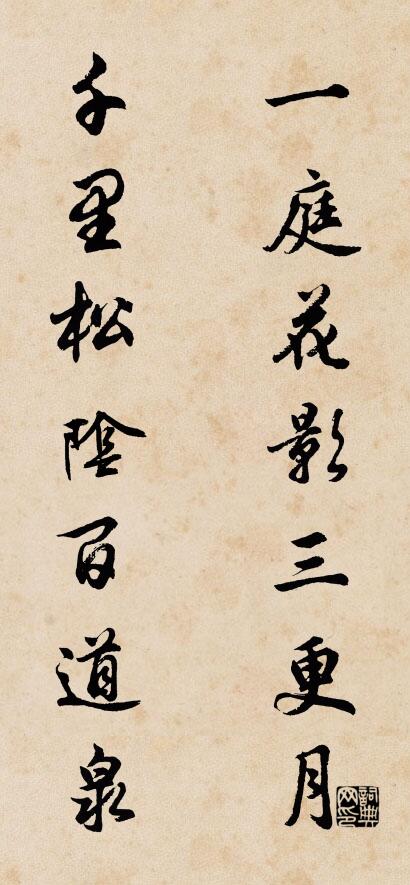 一庭花影三更月
千里松陰百道泉
詞典网印